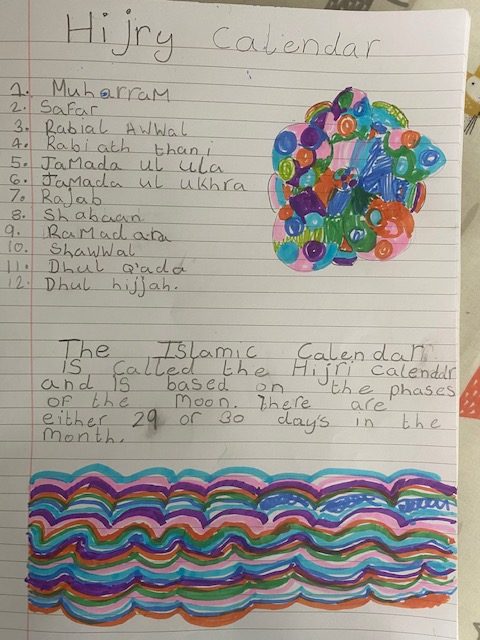 Hijry Calendar
1. Muharram
2. Safar
3. Rabial Awwal
4. Rabi ath thani
5. Jamada ul ula
6. Jamada ul ukhra
7. Rajab
8. Shabaan
9. Ramadan
10. Shawwal
11. Dhul Q'ada
12. Dhul hijjah.
The Islamic Calendar
is called the Hijri calendar
and is based on the phases
of the Moon. There are
either 29 or 30 day's in the
month.